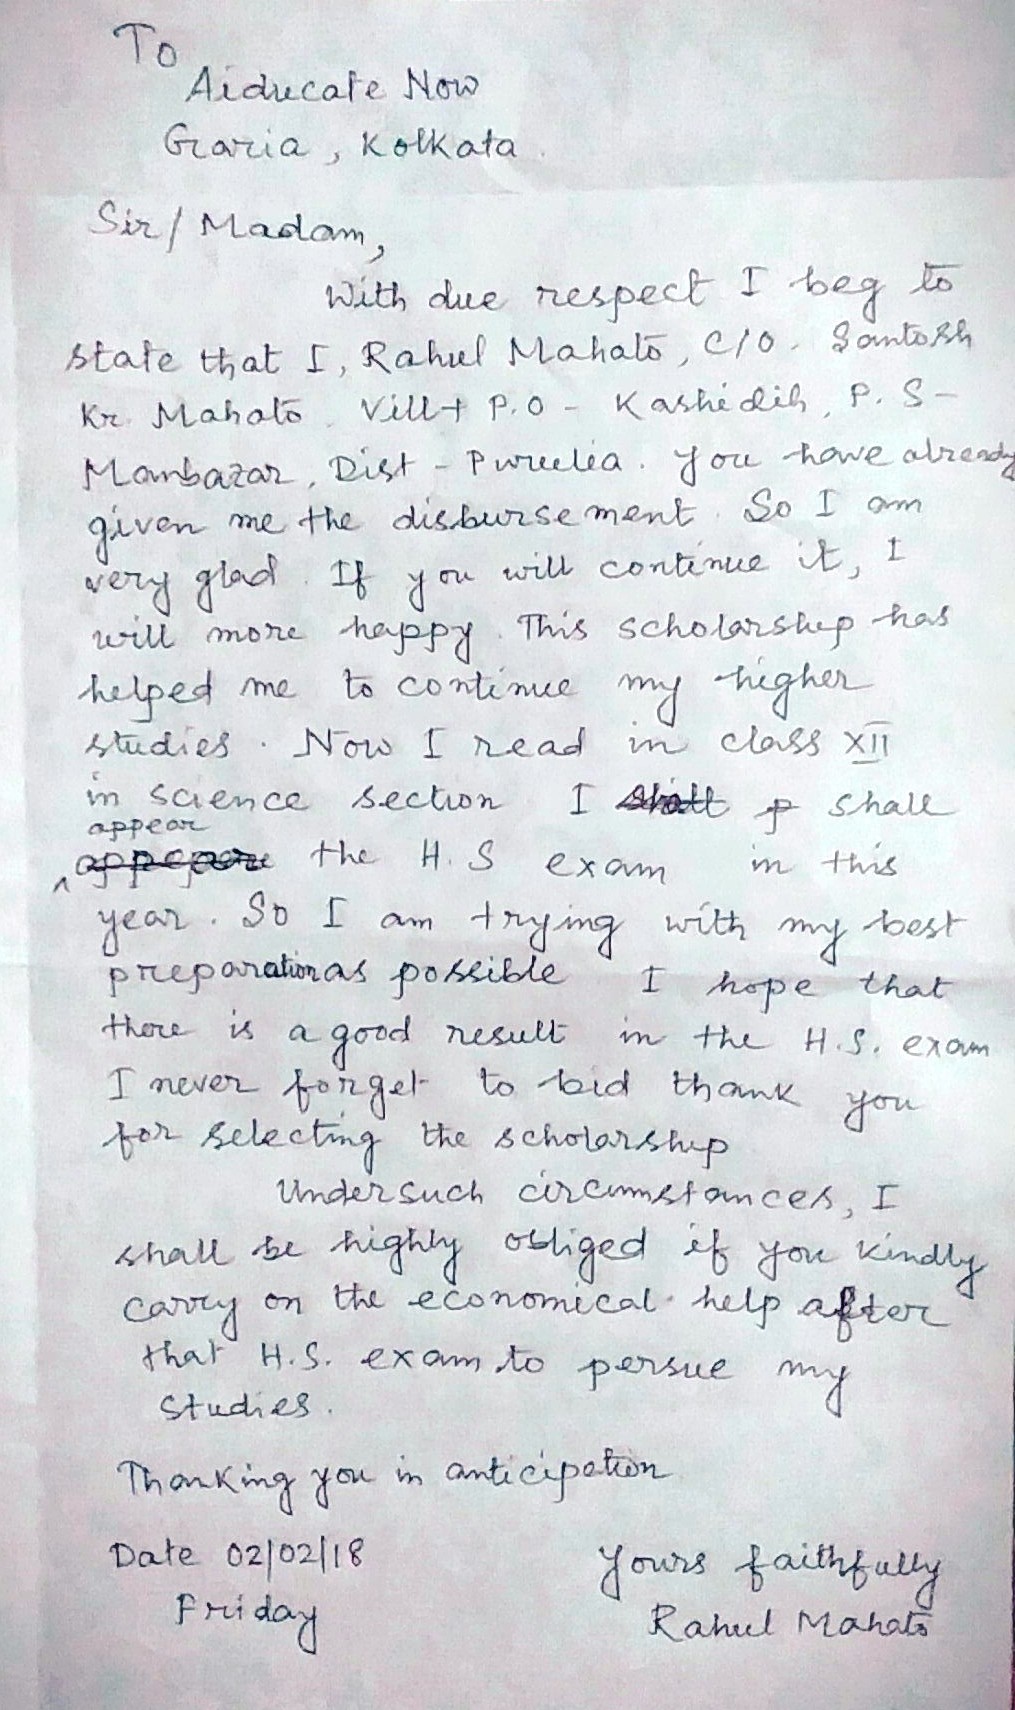 To
Aiducate Now
Garia, Kolkata.
Sir/Madam,
With due respect I beg to
state that I, Rahul Mahato, C/O. Santosh
Kr. Mahato. Vill+P.O - Kashidih, P.S-
Manbazar, Dist - Purulia. You have already
given me the disbursement. So I am
very glad. If you will continue it, I
will more happy. This scholarship has
helped me to continue my higher
studies. Now I read in class XII
in science section I shall p shall
appear
appepare the H.S exam in this
year. So I am trying with my best
preparation as possible I hope that
there is a good result in the H.S. exam
I never forget to bid thank you
for selecting the scholarship
Under such circumstances, I
shall be highly obliged if you kindly
carry on the economical help after
that H.S. exam to persue my
studies.
Thanking you in anticipation
Date 02/02/18
Yours faithfully
Friday
Rahul Mahato